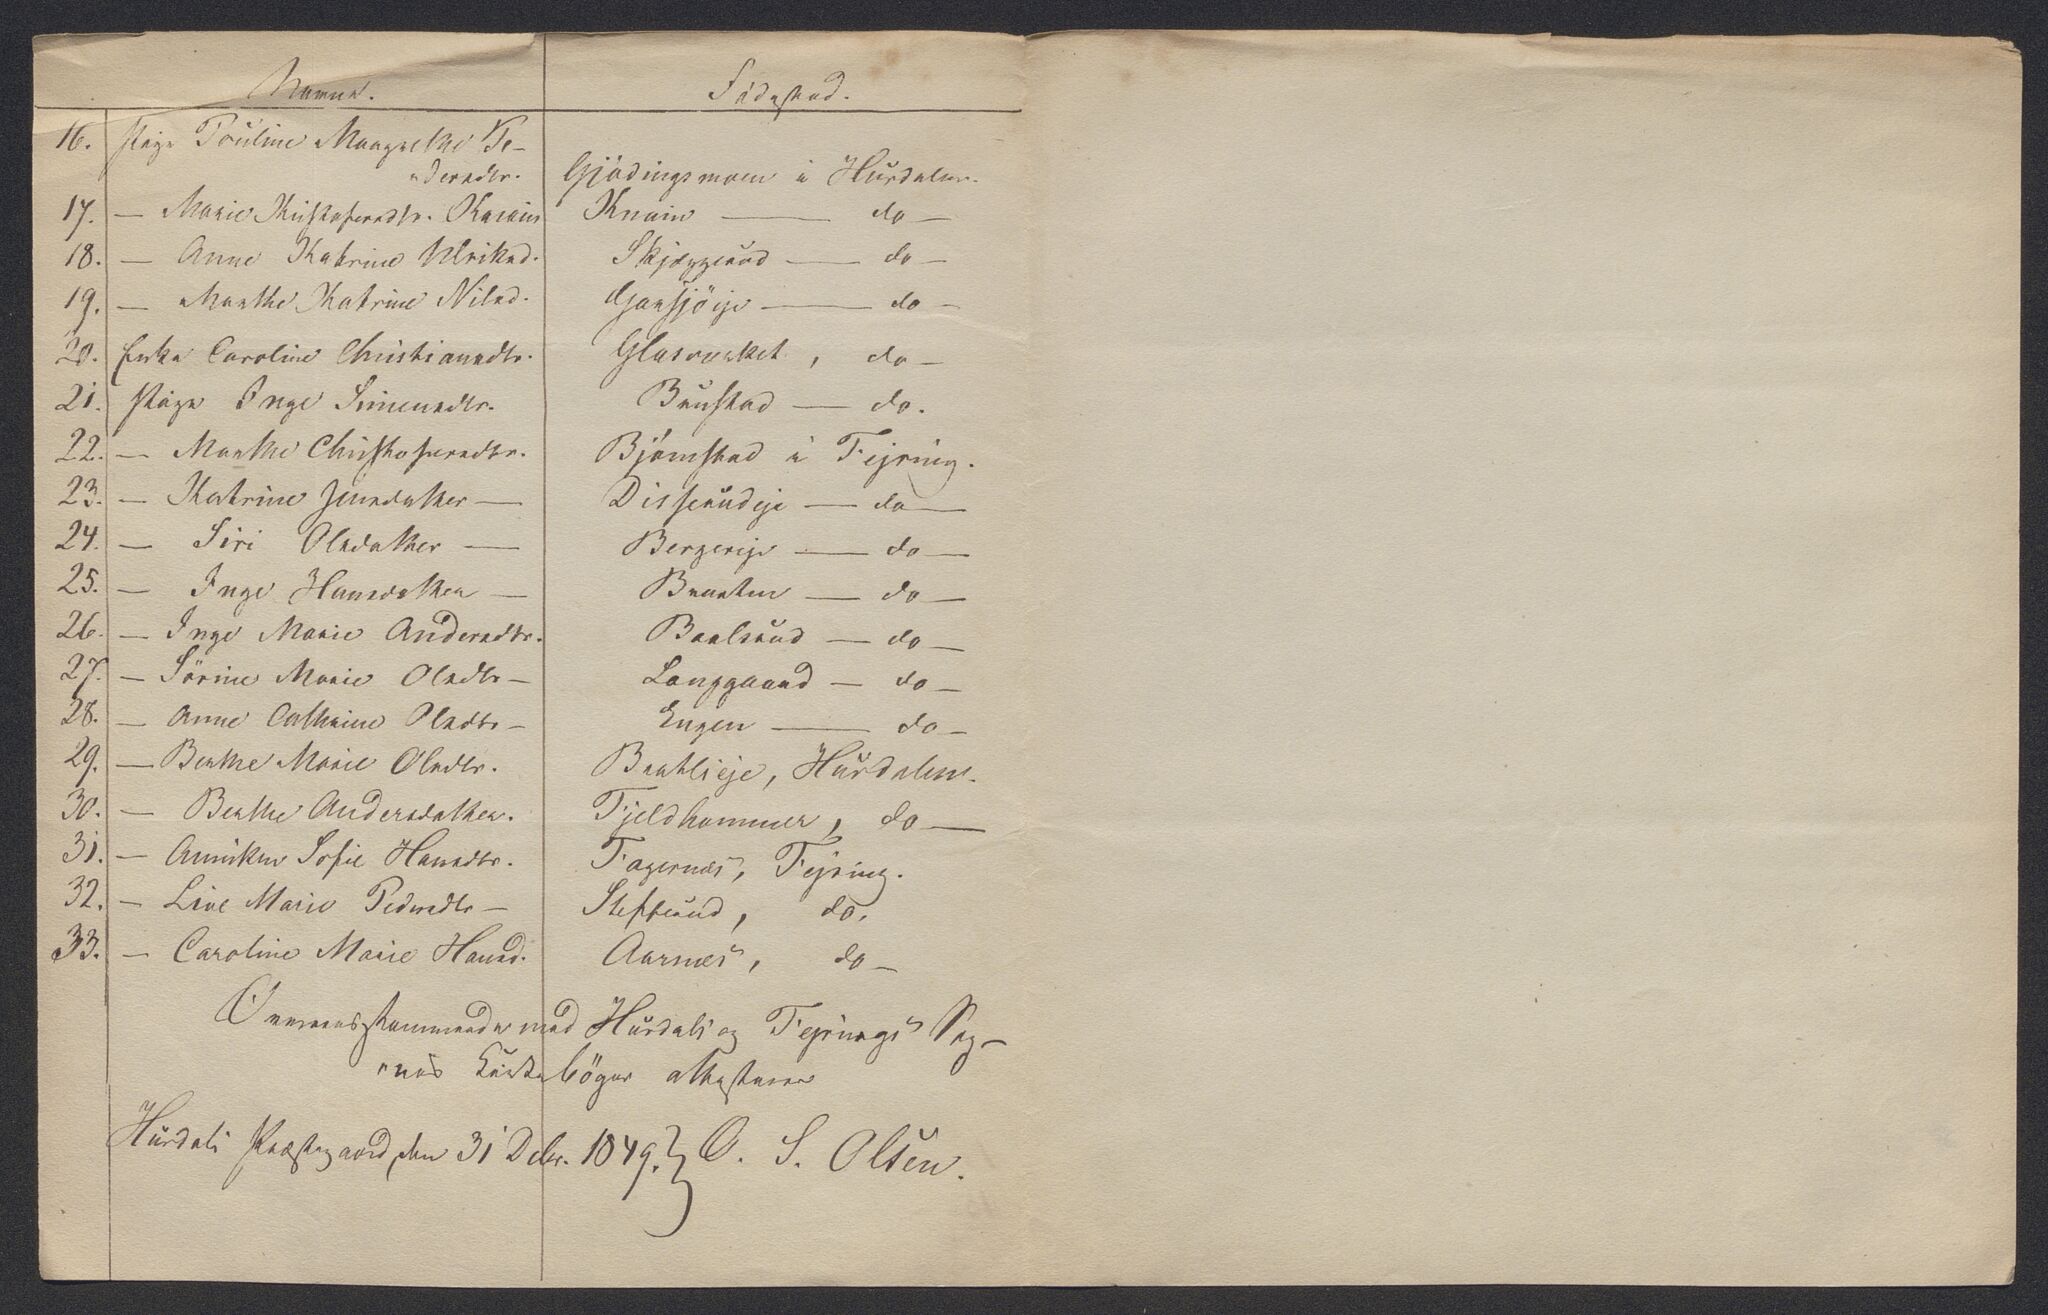 Navne. Födested.
16. Pige Pouline Margrethe Pe-
dersdtr. Gjödingsmoen i Hurdalen.
17. — Marie Kristofersdtr. Knain Knain — do —
18. — Anne Katrine Ulriksd. Skjæggerud — do —
19. — Marthe Katrine Nilsd. Garsjöeje — do —
20. Enke Caroline Christiansdtr. Glasværket, do —
21. Pige Inge Simensdtr. Brustad — do.
22. — Marthe Christofersdtr. Björnstad i Fejring.
23. — Katrine Jensdatter — Disserudeje — do —
24. — Siri Olsdatter — Bergereje — do —
25. — Inge Hansdatter — Braaten — do —
26. — Inge Marie Andersdtr. Baalsrud — do —
27. — Sörine Marie Olsdtr — Langgaard — do —
28. — Anne Cathrine Olsdtr — Engen — do —
29. — Berthe Marie Olsdtr. Bratlieje, Hurdalen.
30. — Berthe Andersdatter. Fjeldhammer, do —
31. — Anniken Sofie Hansdtr. Fagernæs, Fejring.
32. — Live Marie Pedersdtr — Stefferud, do.
33. — Caroline Marie Hansd. Aarnæs, do —
Overensstemmende med Hurdals og Fejrings Sog-
nes Kirkebøger attesterer
Hurdals Præstegaard, den 31 Decbr. 1849. O. S. Olsen.